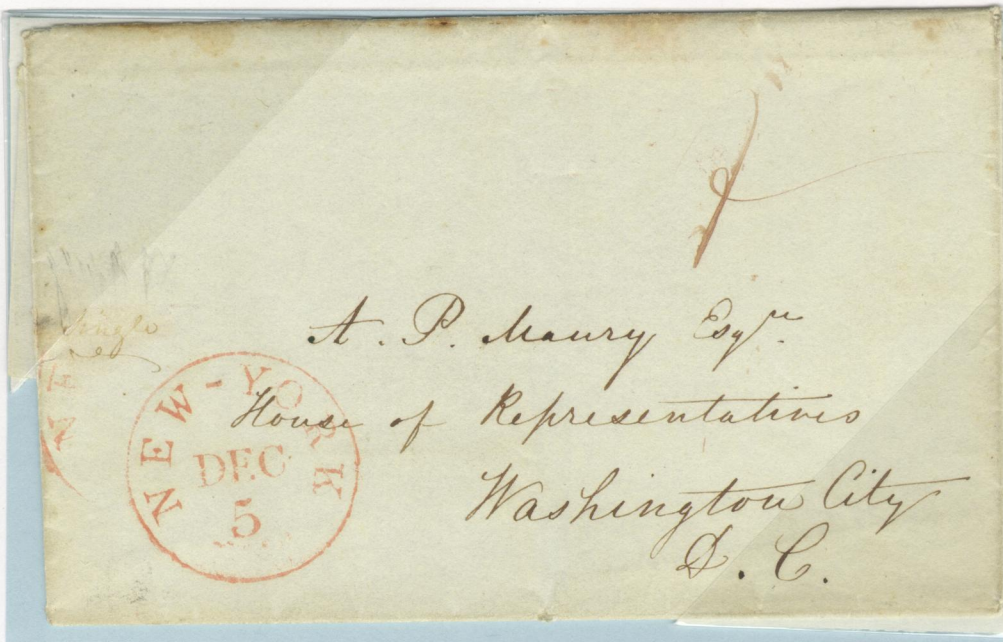 Single
A. P. Maury Esqre.
House of Representatives
Washington City
D. C.
NEW-YORK
DEC
5
NE